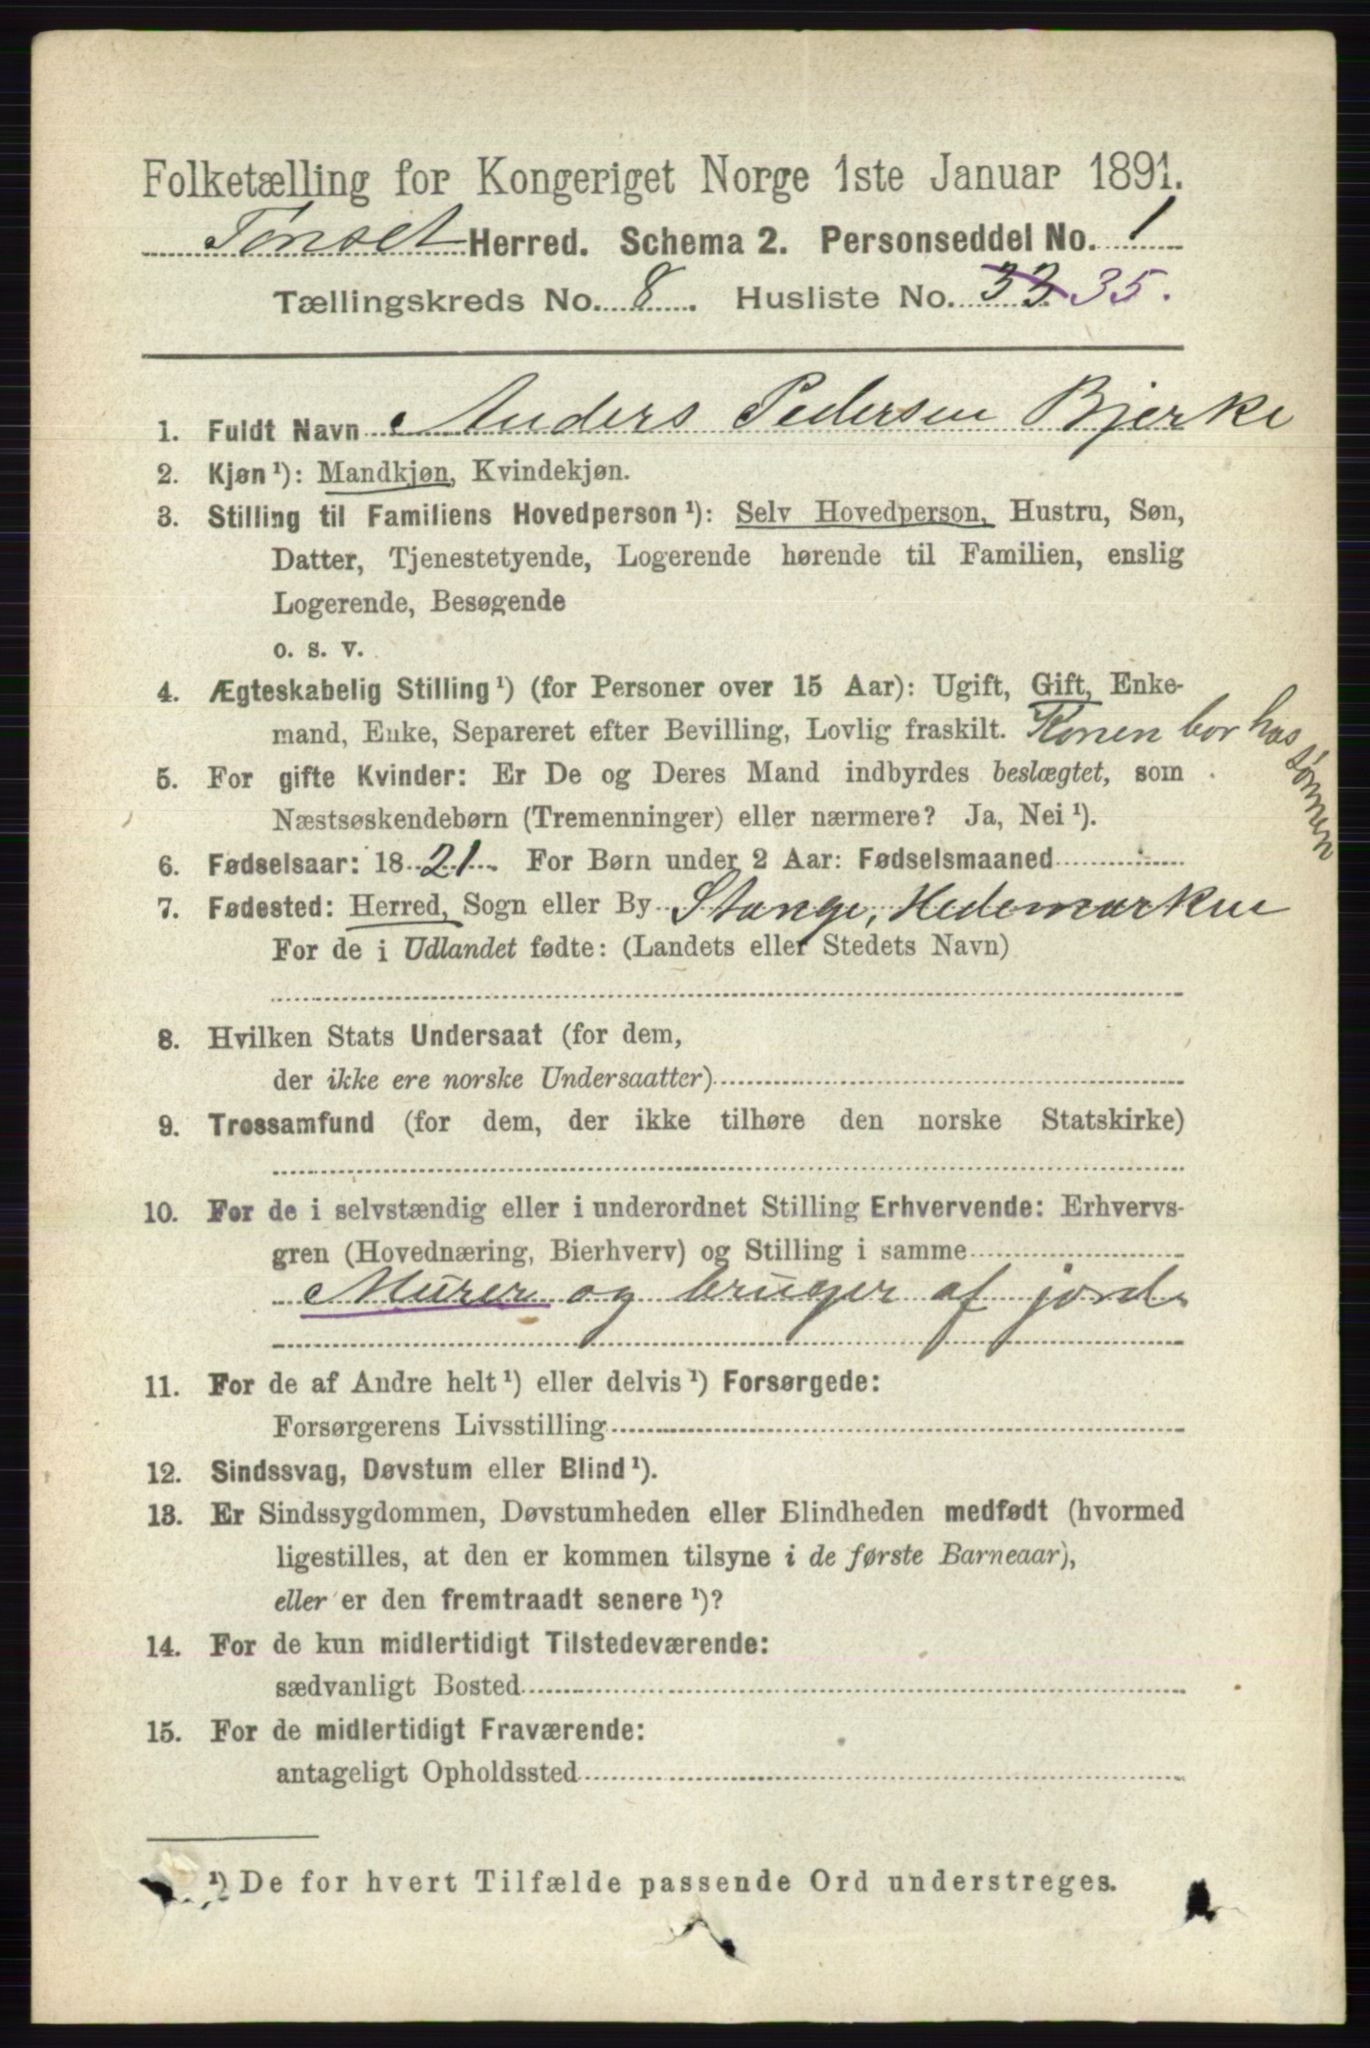 Folketælling for Kongeriget Norge 1ste Januar 1891.
Tønset Herred. Schema 2. Personseddel No. 1
Tællingskreds No. 8. Husliste No. 33 35.
1. Fuldt Navn Anders Pedersen Bjerke
2. Kjøn ¹): Mandkjøn, Kvindekjøn.
3. Stilling til Familiens Hovedperson ¹): Selv Hovedperson, Hustru, Søn,
Datter, Tjenestetyende, Logerende hørende til Familien, enslig
Logerende, Besøgende
o. s. v.
4. Ægteskabelig Stilling ¹) (for Personer over 15 Aar): Ugift, Gift, Enke-
mand, Enke, Separeret efter Bevilling, Lovlig fraskilt. Konen bor hos sønnen
5. For gifte Kvinder: Er De og Deres Mand indbyrdes beslægtet, som
Næstsøskendebørn (Tremenninger) eller nærmere? Ja, Nei ¹).
6. Fødselsaar: 1821. For Børn under 2 Aar: Fødselsmaaned
7. Fødested: Herred, Sogn eller By Stange, Hedemarken
For de i Udlandet fødte: (Landets eller Stedets Navn)
8. Hvilken Stats Undersaat (for dem,
der ikke ere norske Undersaatter)
9. Trossamfund (for dem, der ikke tilhøre den norske Statskirke)
10. For de i selvstændig eller i underordnet Stilling Erhvervende: Erhvervs-
gren (Hovednæring, Bierhverv) og Stilling i samme
Murer og bruger af jord
11. For de af Andre helt ¹) eller delvis ¹) Forsørgede:
Forsørgerens Livsstilling
12. Sindssvag, Døvstum eller Blind ¹).
13. Er Sindssygdommen, Døvstumheden eller Blindheden medfødt (hvormed
ligestilles, at den er kommen tilsyne i de første Barneaar),
eller er den fremtraadt senere ¹)?
14. For de kun midlertidigt Tilstedeværende:
sædvanligt Bosted
15. For de midlertidigt Fraværende:
antageligt Opholdssted
¹) De for hvert Tilfælde passende Ord understreges.